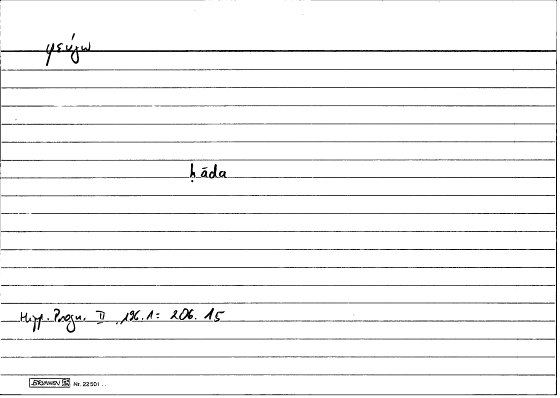 φεύγω
ḥāda
Hipp. Progn. II 196.1 = 206.15
BRUNNEN Nr. 22501